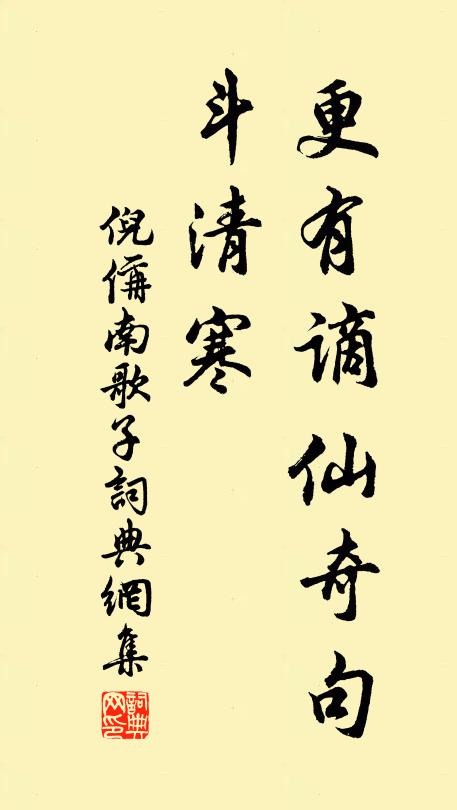 更有謫仙奇句
斗清寒
倪偁南歌子詞典網集
詞典網印